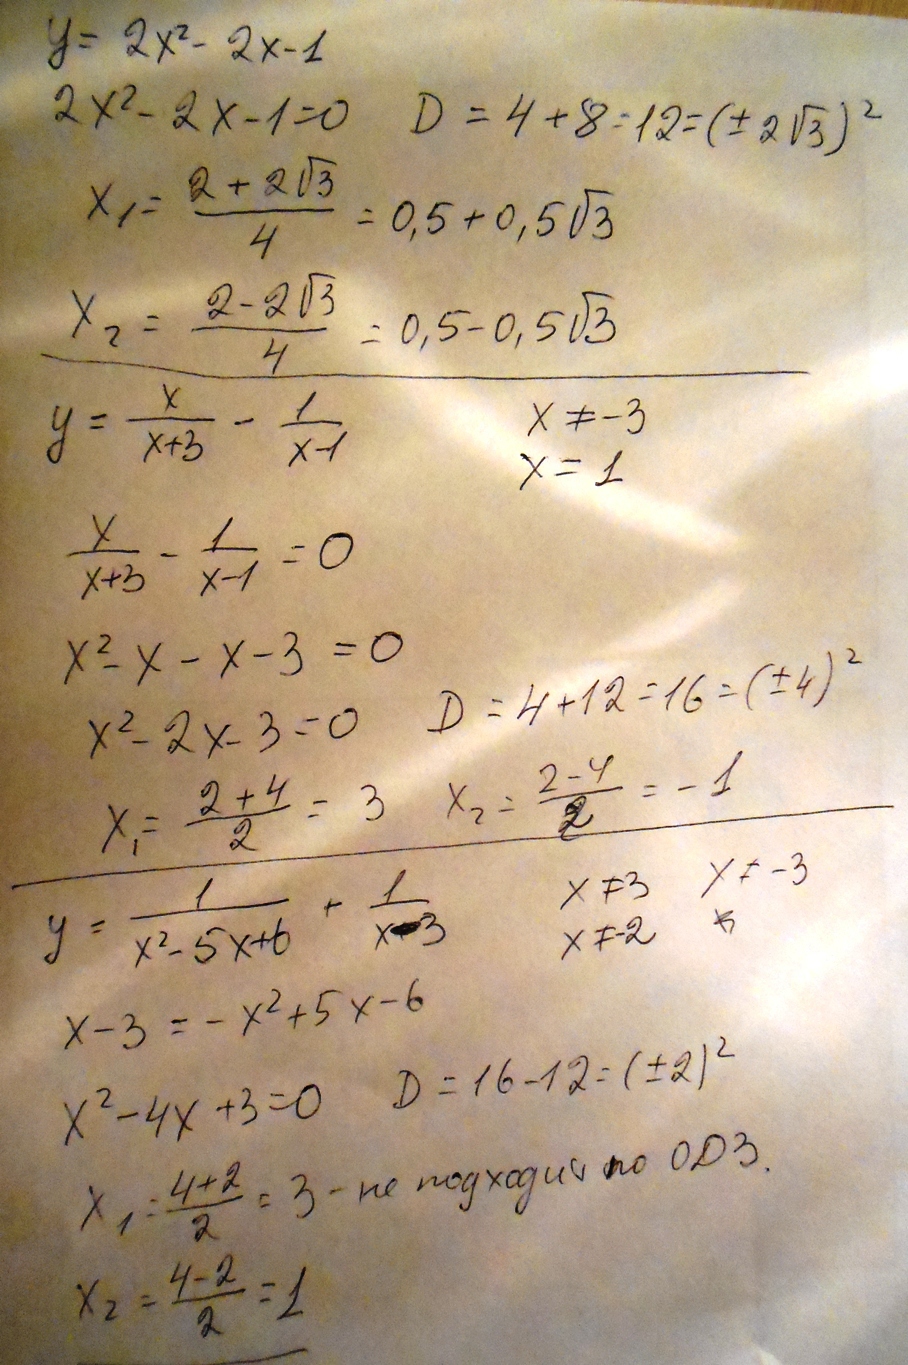 y = 2x² - 2x - 1
2x² - 2x - 1 = 0 D = 4 + 8 = 12 = (± 2√3)²
x₁ = (2 + 2√3)/4 = 0,5 + 0,5√3
x₂ = (2 - 2√3)/4 = 0,5 - 0,5√3
y = x/(x+3) - 1/(x-1) x ≠ -3
x = 1
x/(x+3) - 1/(x-1) = 0
x² - x - x - 3 = 0
x² - 2x - 3 = 0 D = 4 + 12 = 16 = (±4)²
x₁ = (2 + 4)/2 = 3 x₂ = (2 - 4)/2 = -1
y = 1/(x² - 5x + 6) + 1/(x - 3) x ≠ 3 x ≠ -3
x ≠ -2
x - 3 = -x² + 5x - 6
x² - 4x + 3 = 0 D = 16 - 12 = (±2)²
x₁ = (4 + 2)/2 = 3 - не подходит по ОДЗ.
x₂ = (4 - 2)/2 = 1